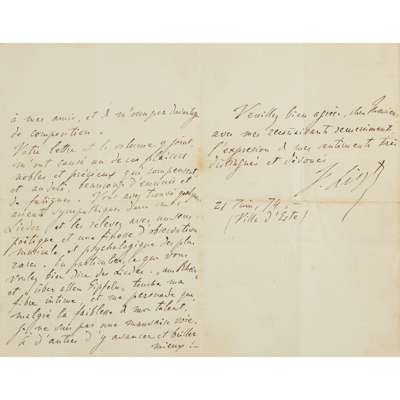 à mes amis, et à m'occuper davantage
de composition.
Votre lettre et le volume y joint,
m'ont causé un de ces plaisirs
nobles et précieux qui compensent
et au delà, beaucoup d'ennuis et
de fatigues. Vous avez trouvé
sympathiques dans mes
Lieder et les relevez avec un sens
poétique et une finesse d'observation
musicale et psychologique des plus
rares. En particulier, ce que vous
voulez bien dire des Lieder
et "über allen Gipfeln" touche ma
fibre intime, et me persuade que,
malgré la faiblesse de mon talent,
je ne suis pas une mauvaise voie.
à d'autres d'y avancer et briller
mieux! –
Veuillez bien agréer, cher Monsieur,
avec mes reconnaissants remerciements
l'expression de mes sentiments très
distingués et dévoués
F. Liszt
21 Juin, 74. –
(Villa d'Este)